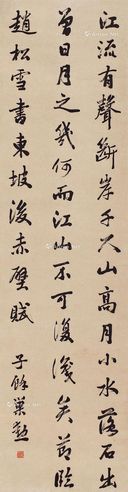 江流有聲斷岸千尺山高月小水落石出
曾日月之幾何而江山不可復識矣節臨
趙松雪書東坡後赤壁賦　子餘巢勳